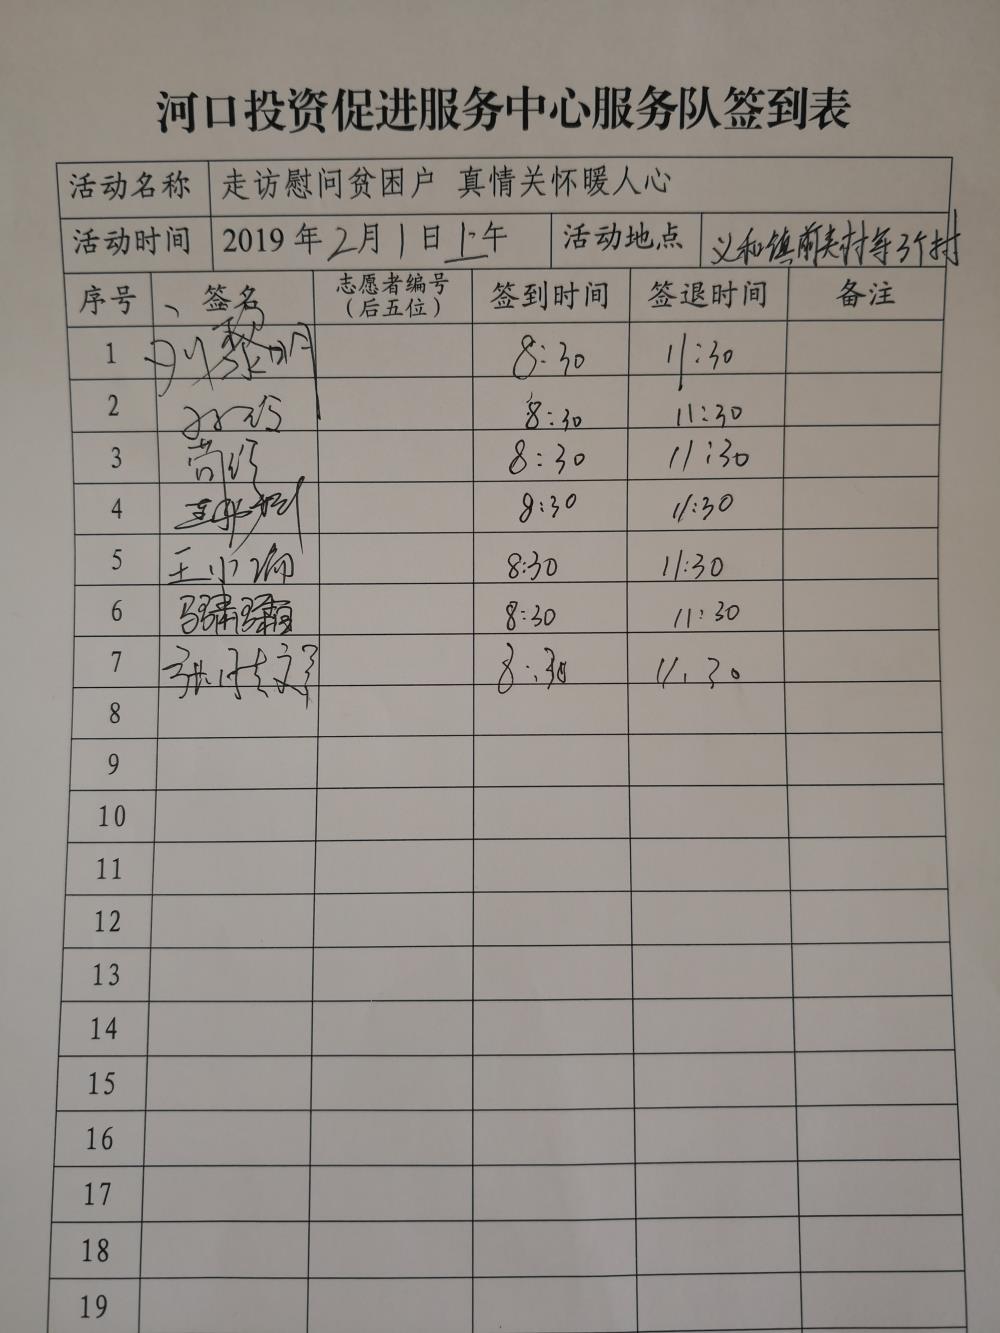 河口投资促进服务中心服务队签到表
活动名称 走访慰问贫困户 真情关怀暖人心
活动时间 2019年2月1日上午 活动地点 义和镇前毕村等3个村
序号 签名 志愿者编号（后五位） 签到时间 签退时间 备注
1 刘黎明 8:30 11:30
2 8:30 11:30
3 8:30 11:30
4 8:30 11:30
5 王小瑜 8:30 11:30
6 8:30 11:30
7 8:30 11:30
8
9
10
11
12
13
14
15
16
17
18
19